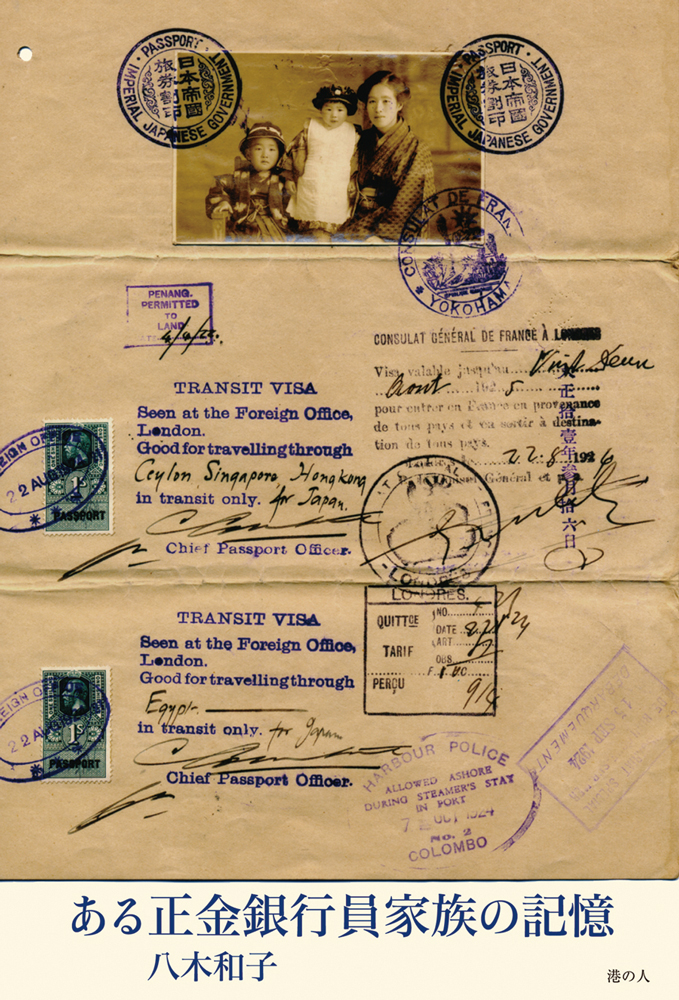 PASSPORT
日本帝國
旅券割印
IMPERIAL JAPANESE GOVERNMENT
PASSPORT
日本帝國
旅券割印
IMPERIAL JAPANESE GOVERNMENT
CONSULAT DE FRAN
YOKOHAMA
PENANG.
PERMITTED
TO
LAND
CONSULAT GÉNÉRAL DE FRANCE À LONDRES
Visa valable jusqu'au
Août 192
pour entrer en France en provenance
de tous pays et en sortir à destina-
tion de tous pays.
22.8. 192
Général et
正拾壹年叁月拾六日
TRANSIT VISA
Seen at the Foreign Office,
London.
Good for travelling through
Ceylon, Singapore, Hongkong
in transit only. for Japan.
Chief Passport Officer.
EIGN OFFICE
22 AUG
1s
PASSPORT
LONDRES
LONDRES.
QUITTCE NO.
DATE
TARIF ART.
OBS.
PERÇU
TRANSIT VISA
Seen at the Foreign Office,
London.
Good for travelling through
Egypt
in transit only. for Japan
Chief Passport Officer.
EIGN OFFICE
22 AUG
1s
PASSPORT
HARBOUR POLICE
ALLOWED ASHORE
DURING STEAMER'S STAY
IN PORT
OCT 1924
No. 2
COLOMBO
ある正金銀行員家族の記憶
八木和子
港の人